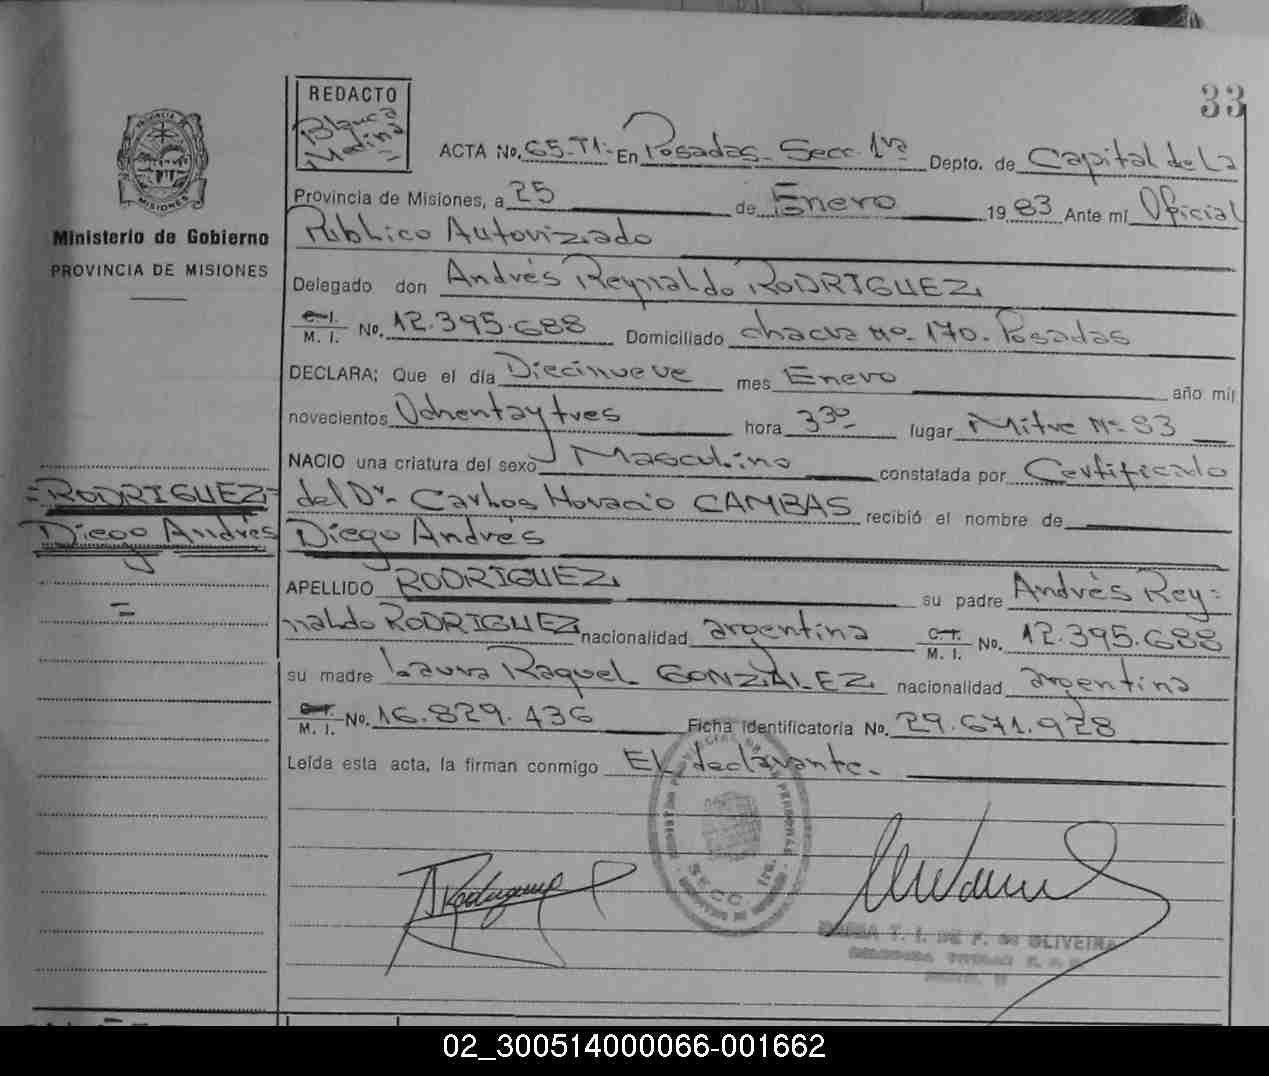 33
REDACTO
Blanca
Medina
PROVINCIA DE
MISIONES
Ministerio de Gobierno
PROVINCIA DE MISIONES
ACTA No. 65-T1- En Posadas- Secc. 1ra Depto. de Capital de La
Provincia de Misiones, a 25 de Enero 1983 Ante mí Oficial
Público Autorizado
Delegado don Andrés Reynaldo RODRIGUEZ
C. I.
M. I. No. 12.395.688 Domiciliado chacra nº 170. Posadas
DECLARA: Que el día Diecinueve mes Enero año mil
novecientos Ochentaytres hora 3 30 lugar Mitre Nº 83
NACIO una criatura del sexo Masculino constatada por Certificado
del Dr. Carlos Horacio CAMBAS recibió el nombre de
=RODRIGUEZ=
Diego Andrés
=
Diego Andrés
APELLIDO RODRIGUEZ su padre Andrés Rey=
naldo RODRIGUEZ nacionalidad argentina C. I. M. I. No. 12.395.688
su madre Laura Raquel GONZALEZ nacionalidad argentina
C. I.
M. I. No. 16.829.436 Ficha identificatoria No. 29.671.978
Leída esta acta, la firman conmigo El declarante.
SECC. 1ra.
MARIA T. I. DE F. de OLIVEIRA
02_300514000066-001662